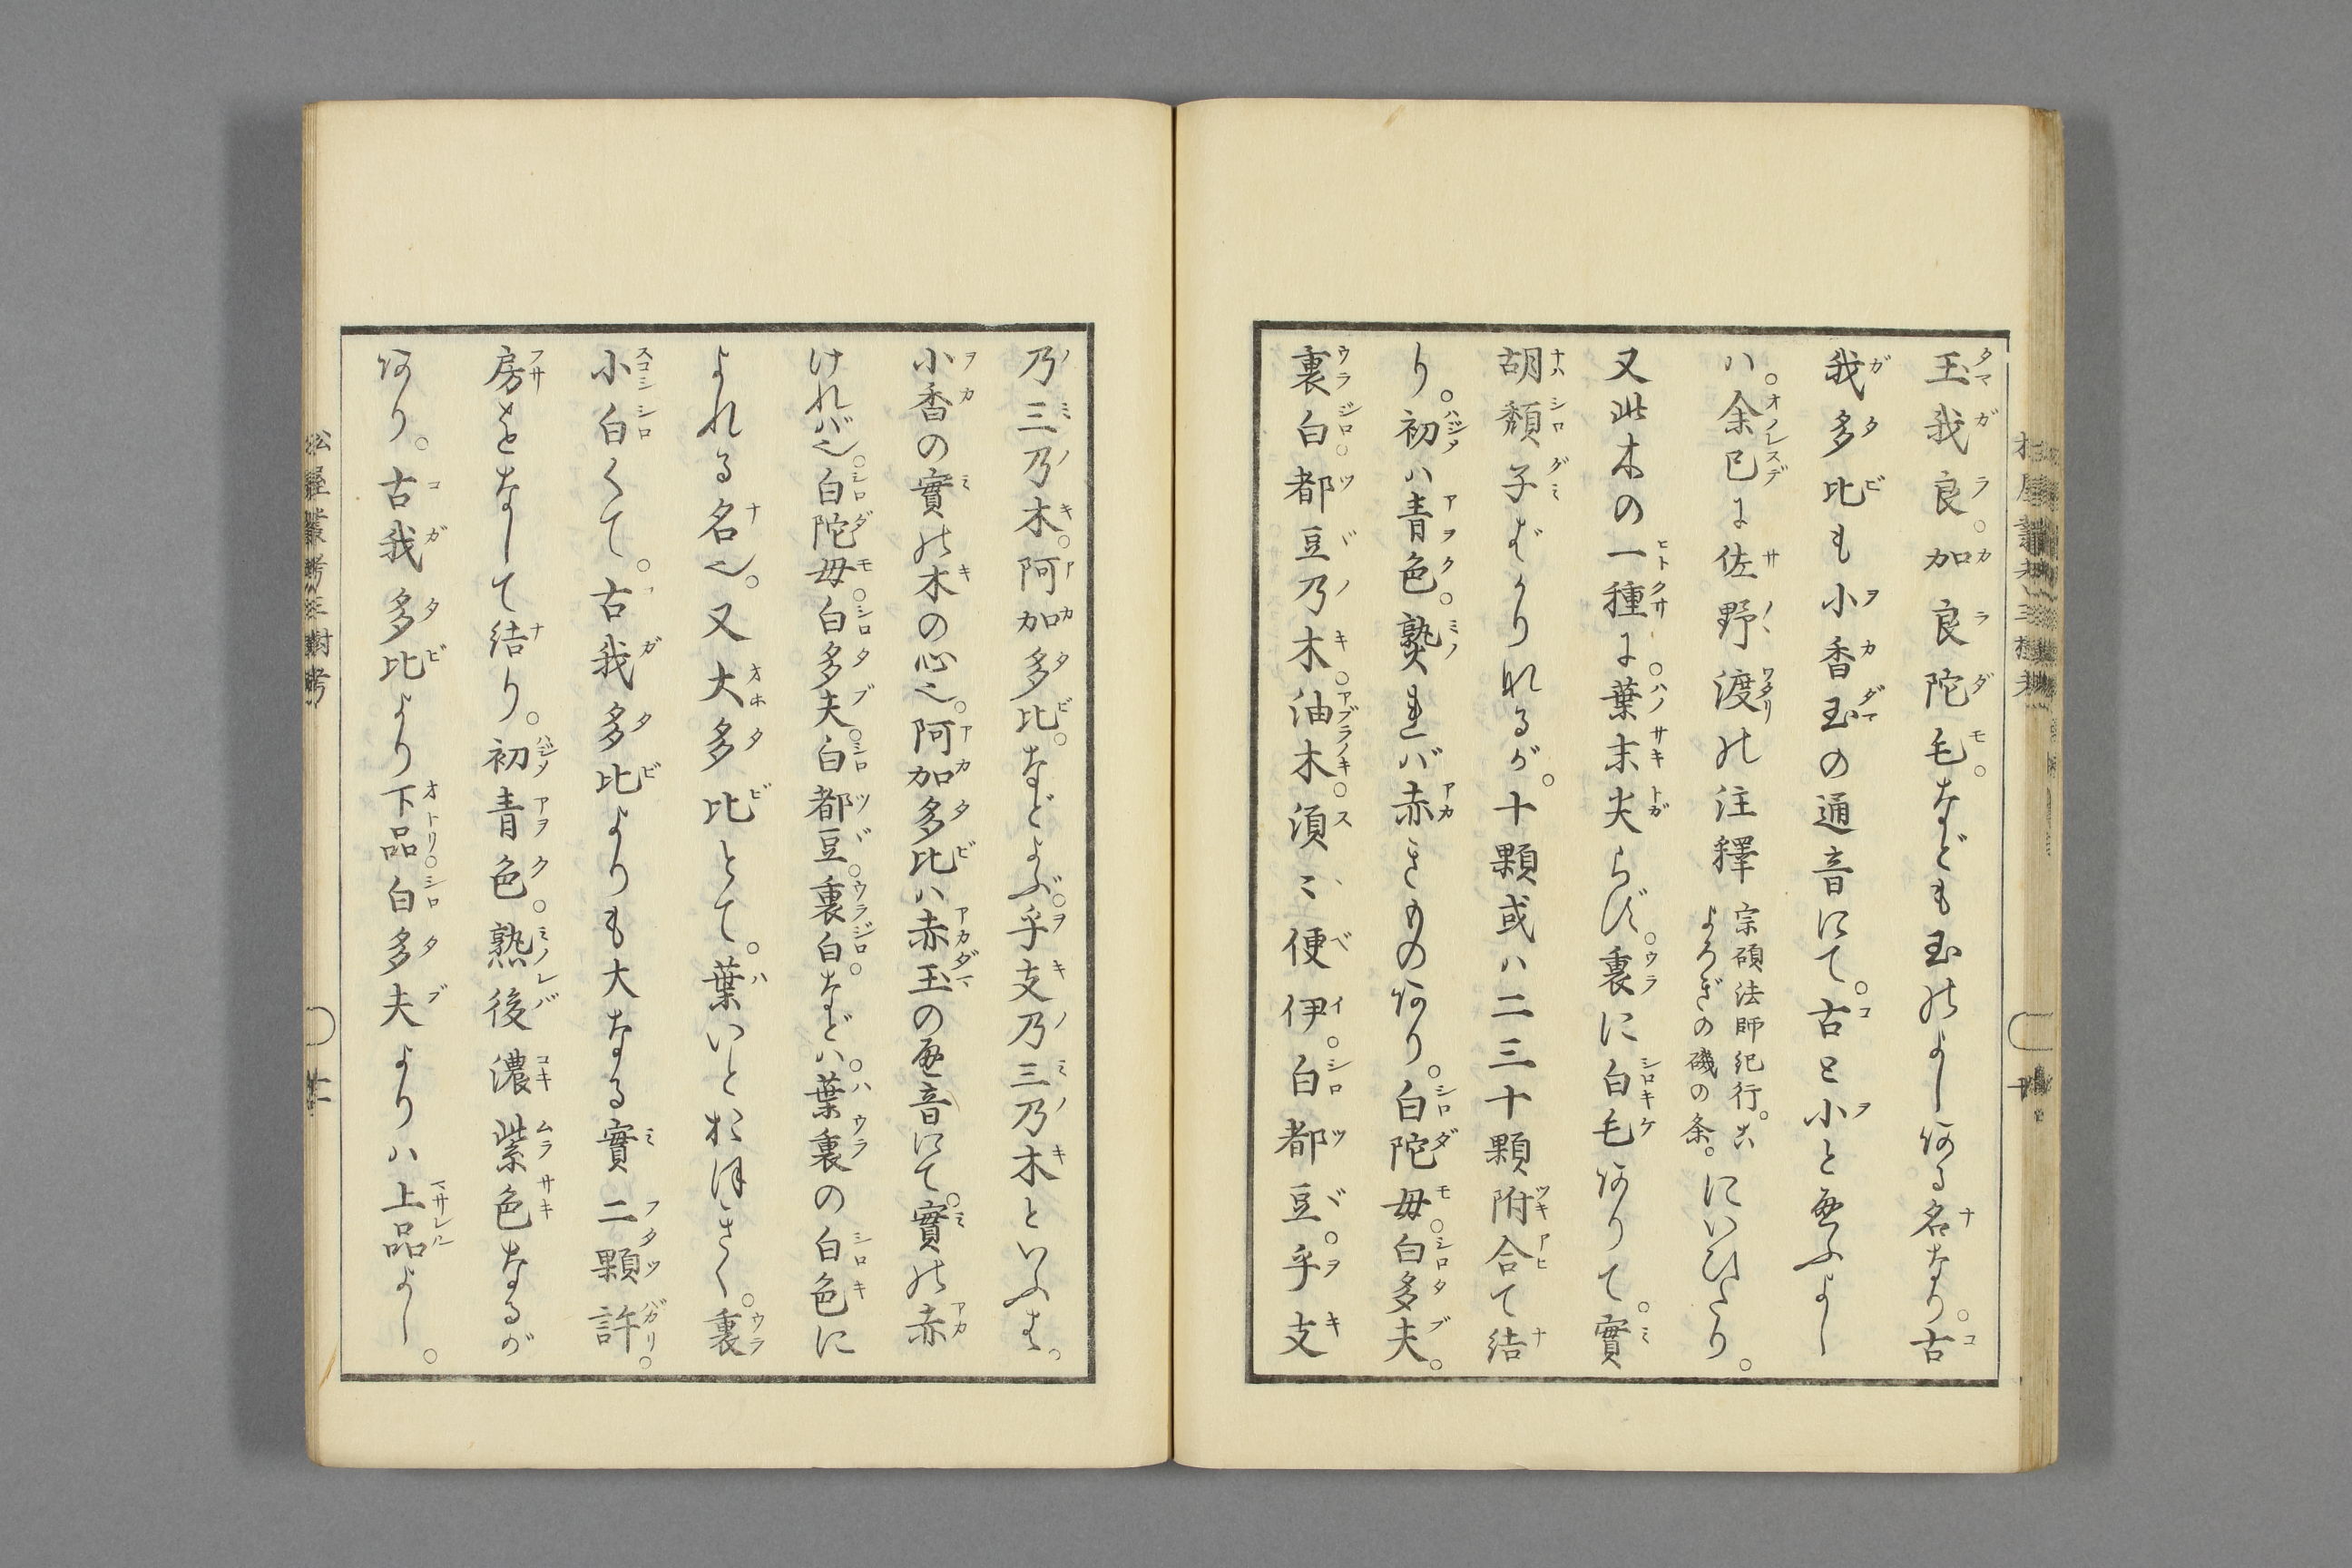 玉我良。加良陀毛。なども玉のよしある名なり。古
我多比も小香玉の通音にて。古と小と通ふよし
ハ。余已に佐野渡の注釋宗碩法師紀行。よろぎの磯の条。にいひたり。
又此木の一種に。葉末尖らず。裏に白毛ありて。實
胡頽子ばかりなるが。十顆或ハ二三十顆附合て結
り。初ハ青色。熟れバ赤きものあり。白陀毋。白多夫。
裏白。都豆乃木。油木。須〻便伊。白都豆。乎支
乃三乃木。阿加多比。などよぶ。乎支乃三乃木といふは。
小香の實の木の心也。阿加多比ハ赤玉の通音にて。實の赤
けれバ也。白陀毋。白多夫。白都豆。裏白。などハ。葉裏の白色に
よれる名也。又大多比とて。葉いとおほきく。裏
小白くて。古我多比よりも大なる實二顆許。
房をなして結り。初青色。熟後濃紫色なるが
あり。古我多比より下品。白多夫よりハ上品よし。
松屋叢考三樹考